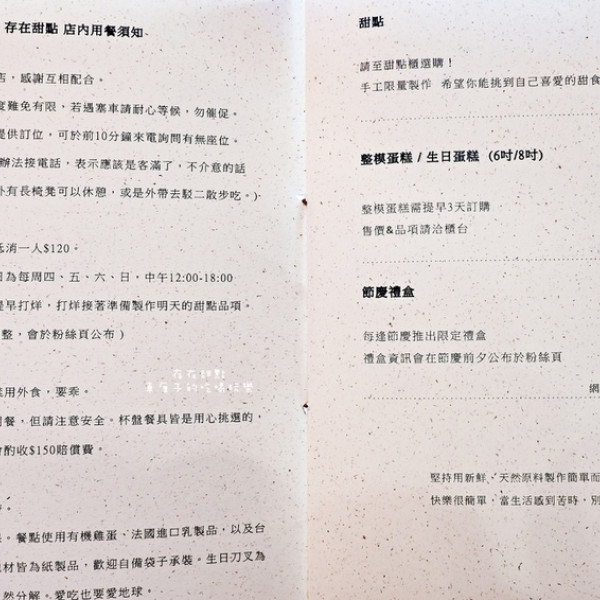 存在甜點 店內用餐須知
店，感謝互相配合。
度難免有限，若遇塞車請耐心等候，勿催促。
提供訂位，可於前10分鐘來電詢問有無座位。
辦法接電話，表示應該是客滿了，不介意的話
外有長椅凳可以休憩，或是外帶去駁二散步吃。)
低消一人$120。
為每周四、五、六、日，中午12:00-18:00
提早打烊，打烊接著準備製作明天的甜點品項。
整，會於粉絲頁公布 )
用外食，要乖。
餐，但請注意安全。杯盤餐具皆是用心挑選的，
酌收$150賠償費。
。餐點使用有機雞蛋、法國進口乳製品，以及台
材皆為紙製品，歡迎自備袋子承裝。生日刀叉為
然分解。愛吃也要愛地球。
存在甜點
甜點
請至甜點櫃選購！
手工限量製作 希望你能挑到自己喜愛的甜食
整模蛋糕 / 生日蛋糕 (6吋/8吋)
整模蛋糕需提早3天訂購
售價&品項請洽櫃台
節慶禮盒
每逢節慶推出限定禮盒
禮盒資訊會在節慶前夕公布於粉絲頁
網
堅持用新鮮、天然原料製作簡單而
快樂很簡單，當生活感到苦時，別